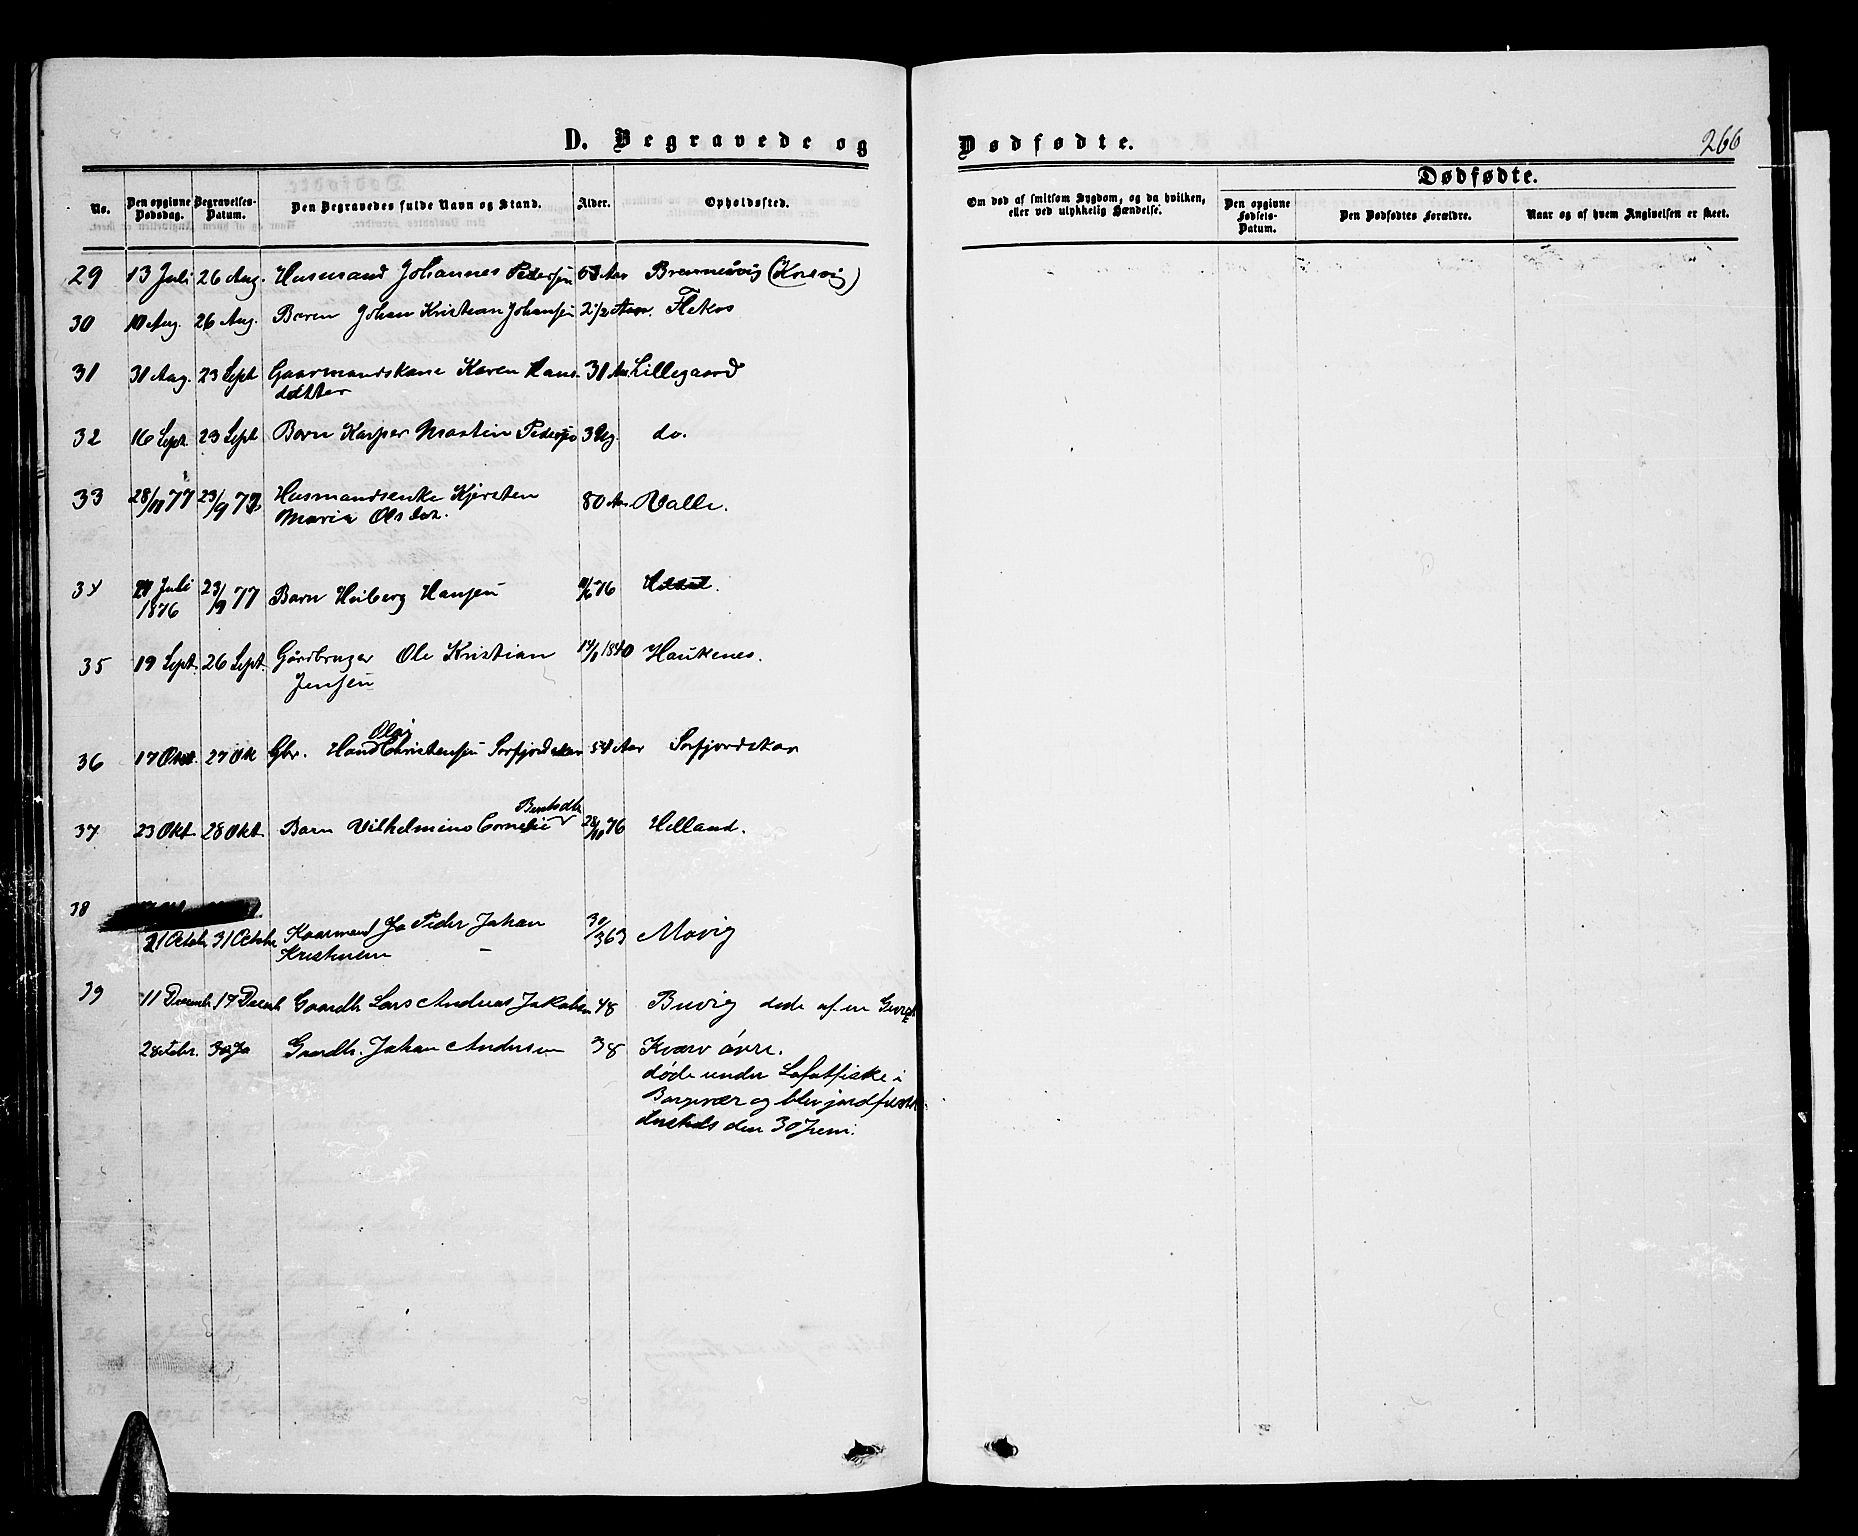 D. Begravede og Dødfødte.
266
No. Den opgivne Dødsdag. Begravelses-Datum. Den Begravedes fulde Navn og Stand. Alder. Opholdssted.
Om død af smitsom Sygdom, og da hvilken, eller ved ulykkelig Hændelse.
Dødfødte.
Den opgivne Fødsels-Datum. Den Dødfødtes Forældre. Naar og af hvem Angivelsen er skeet.
29 13 Juli 26 Aug. Husmand Johannes Pedersen 53 Aar
30 10 Aug. 26 Aug. Barn Johan Kristian Johansen 2 1/2 Aar. Flekos
31 31 Aug. 23 Sept Gaarmandskane Karen Hans- 31 Aar Lillegaard
datter
32 16 Sept. 23 Sept Barn Kasper Martin Pedersen 3 Ug. do.
33 28/11 77 23/9 77 Husmandsenke Kjersten 80 Aar Valle.
Maria Olsdat.
34 Juli 23/9 77 Barn Heiberg Hansen 11/6 76
1876
35 19 Sept. 26 Sept. Gårdbruger Ole Kristian 14/8 1840 Haukenes.
Jensen
Olai
36 17 Okt. 27 Ok Gbr. Hans Christensen Sørfjordskar 54 Aar Sørfjordskar
Bentsdtr
37 23 Okt. 28 Okt. Barn Vilhelmine Cornelie 28/10 76 Helland.
38
21 Octobr 31 Octobr Kaarmand Jo Peder Johan 30/3 63 Movig
39 11 Decemb. 17 Decemb Gaardb. Lars Andreas Jakobsen 48 Buvig døde af en
2 30 Gaardb. Johan Andersen 38 Kvarv øvre.
døde under Lofotfiske i
Borgevær og blev jordfæstet
dersteds den 30 Juni.